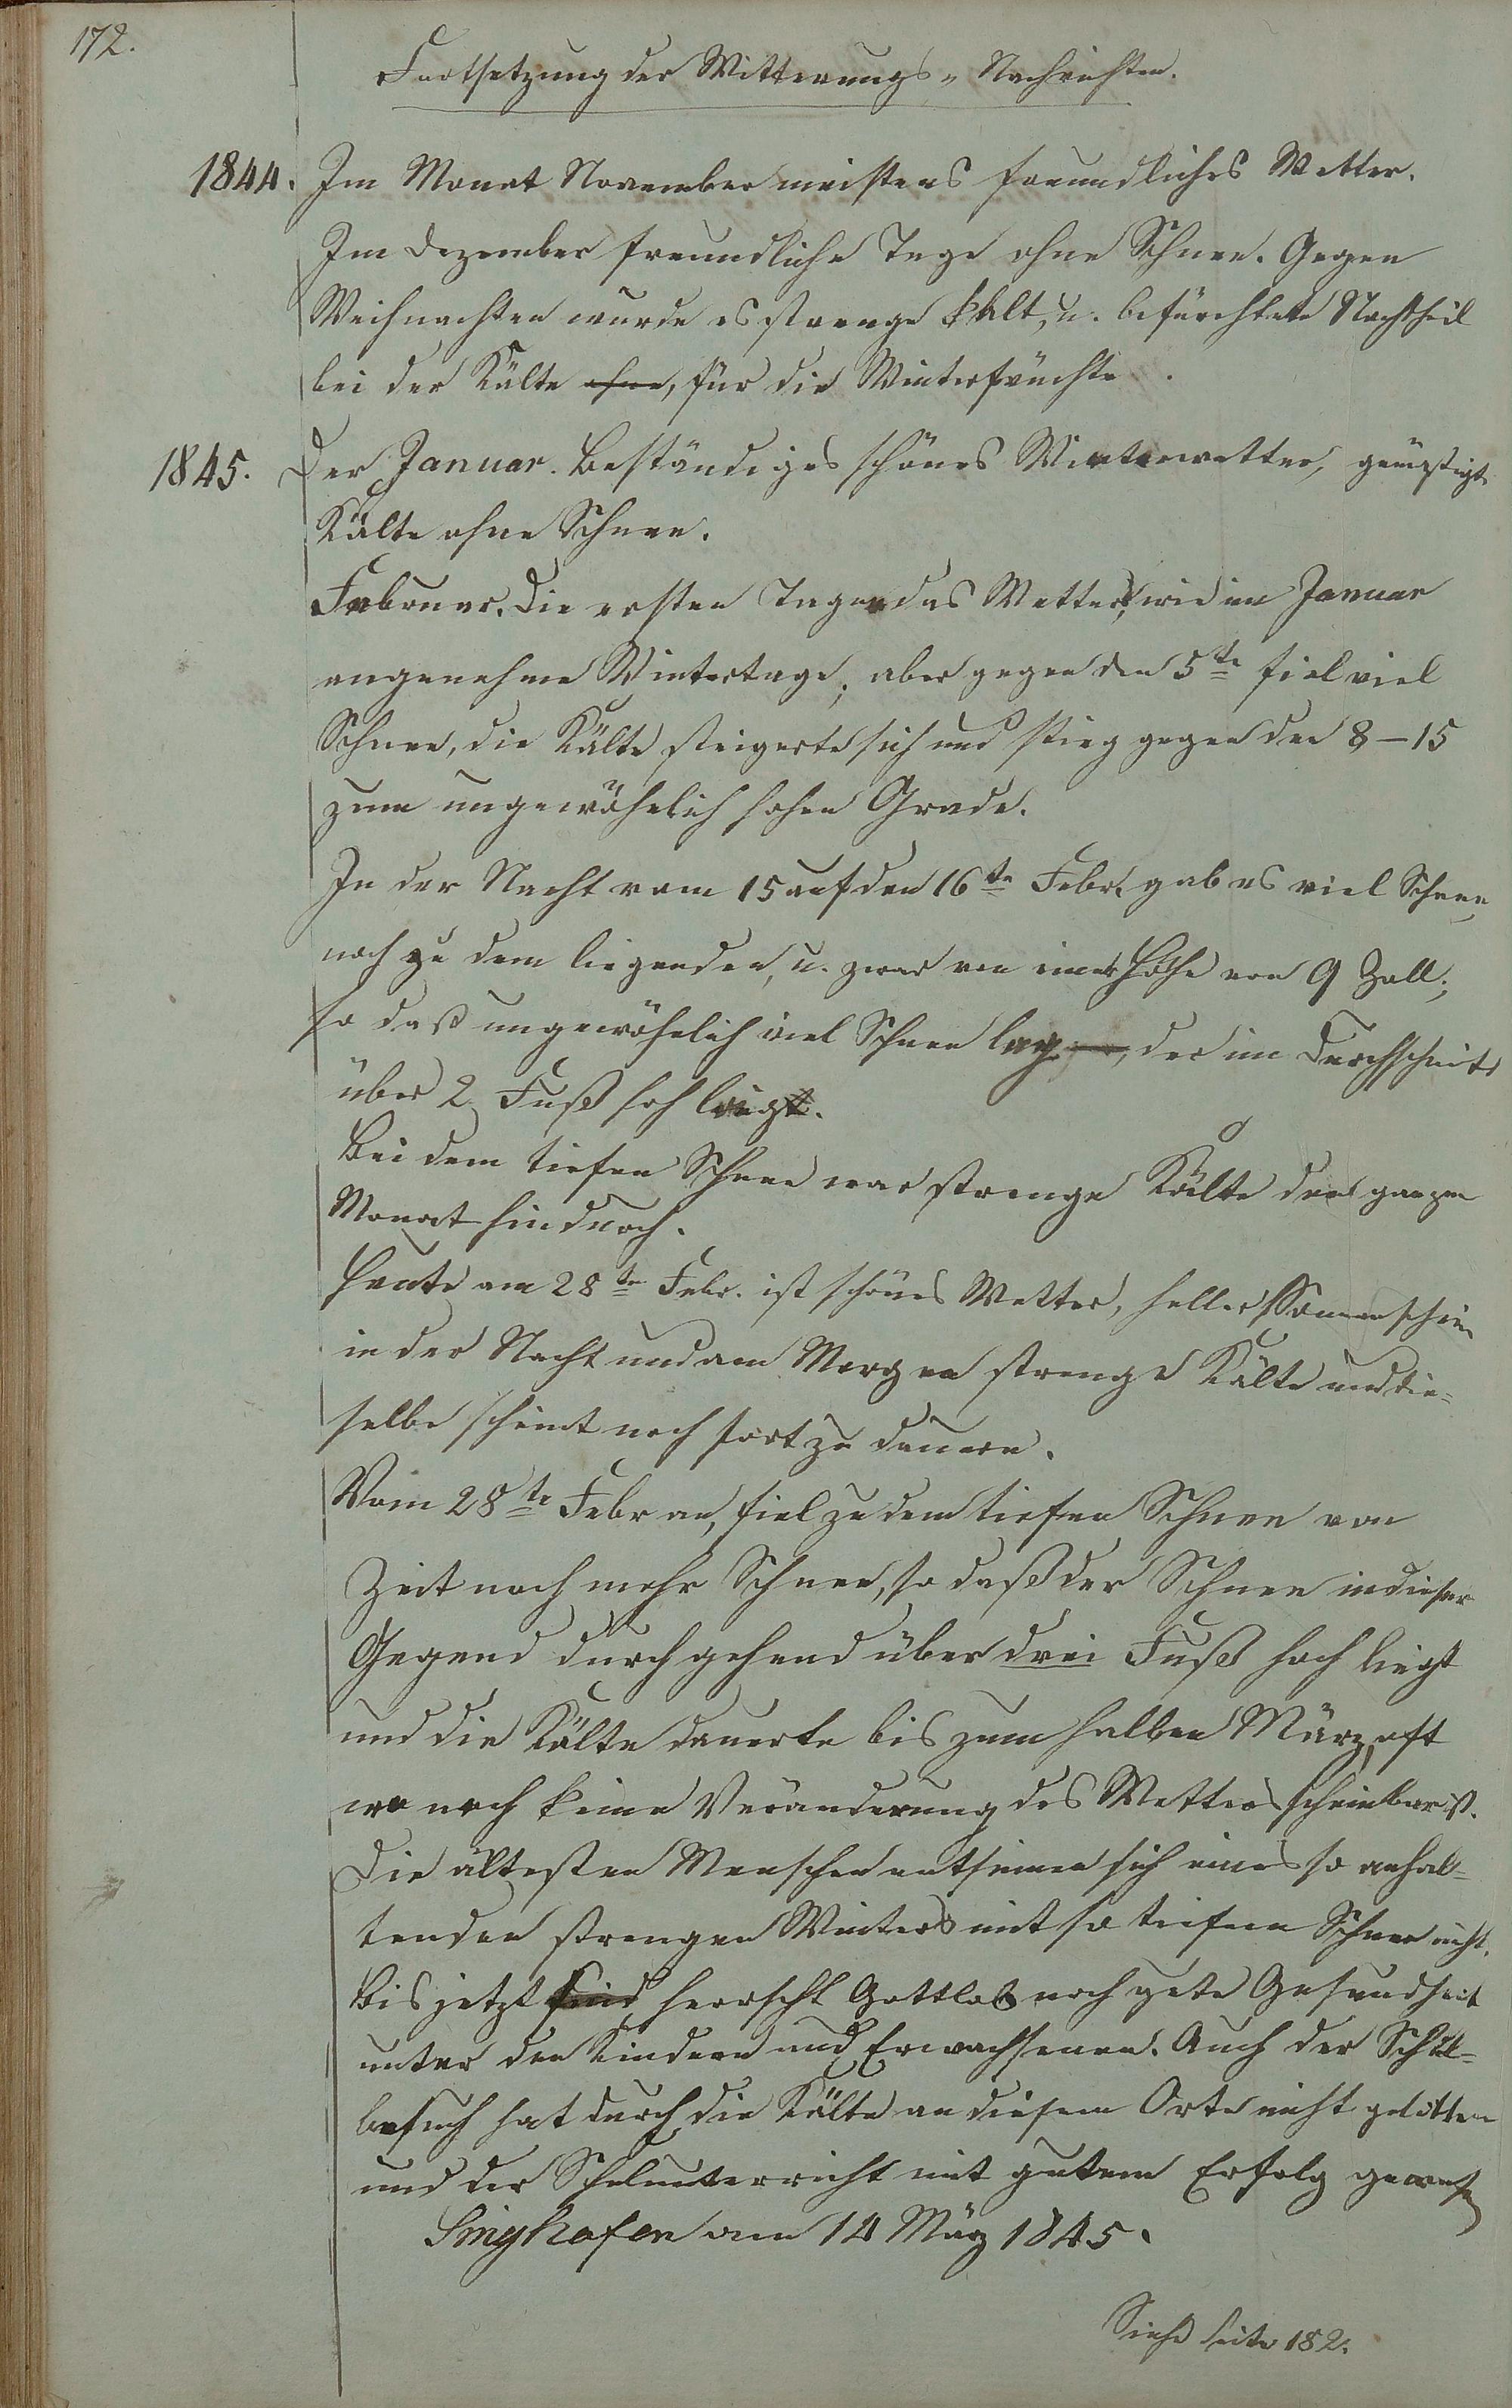 172.
Fortsetzung der Witterungs-Nachrichten.
1844. Im Monat November meistens freundliches Wetter.
Im Dezember freundliche Tage ohne Schnee. Gegen
Weihnachten wurde es strenge kalt, u. befürchtete Nachtheil
bei der Kälte ohne, für die Winterfrüchte.
1845. Der Januar. Beständiges schönes Winterwetter, gemäßigte
Kälte ohne Schnee.
Februar. Die ersten Tage des Wetters, wie im Januar
angenehme Wintertage; aber gegen den 5te fiel viel
Schnee, die Kälte steigerte sich und stieg gegen den 8-15
zum ungewöhnlich hohen Grade.
In der Nacht vom 15 auf den 16te Febr. gab es viel Schnee,
noch zu dem liegenden, u. zwar von einer Höhe von 9 Zoll;
so daß ungewöhnlich viel Schnee lag, der im Durchschnitt
über 2 Fuß hoch liegt.
Bei dem tiefen Schnee war strenge Kälte den ganzen
Monat hindurch.
Heute am 28te Febr. ist schönes Wetter, heller Sonnenschein
in der Nacht und am Morgen strenge Kälte und die-
selbe scheint noch fort zu dauern.
Vom 28te Febr an, fiel zu dem tiefen Schnee von
Zeit noch mehr Schnee, so daß der Schnee in dieser
Gegend durchgehend über drei Fuß hoch liegt
und die Kälte dauerte bis zum halben März, oft
wo noch keine Veränderung des Wetters scheinbar ist.
Die ältesten Menschen entsinnen sich eines so anhal-
tenden strengen Winters mit so tiefem Schnee nicht.
Bis jetzt sind herrscht Gottlob noch gute Gesundheit
unter den Kindern und Erwachsenen. Auch der Schul-
besuch hat durch die Kälte an diesem Orte nicht gelitten
und der Schulunterricht mit gutem Erfolg gewesen
Singhofen am 14 März 1845.
Siehe Seite 182.